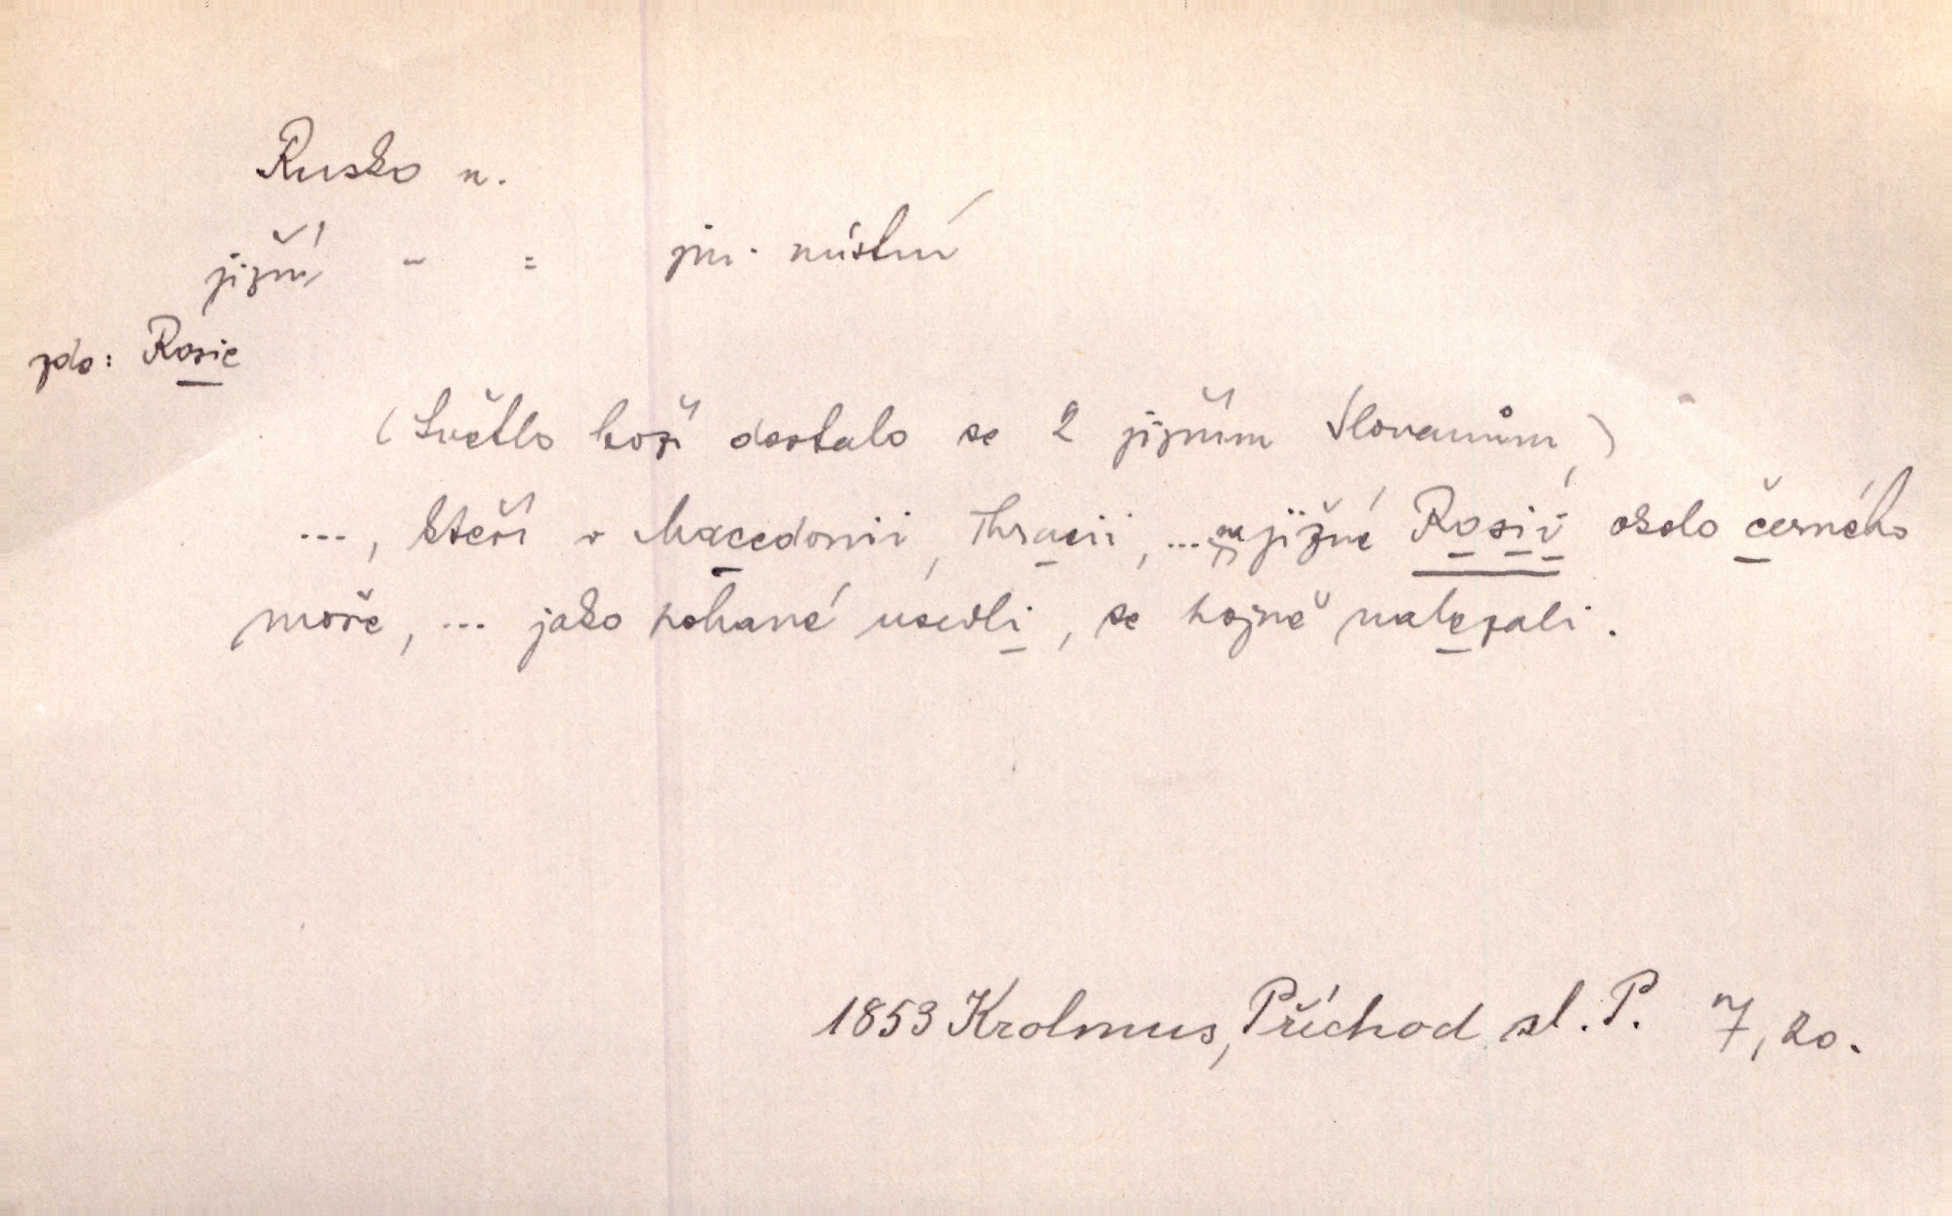 Rusko n.
jižní - = jm. místní
zde: Rosie
(Světlo boží dostalo se k jižním Slovanům,)
..., kteří v Macedonii, Thracii, ... na jižné Rosii okolo černého
moře, ... jako pohané usedli, se hojně nalezali.
1853 Krolmus, Příchod sl. P. 7, 20.